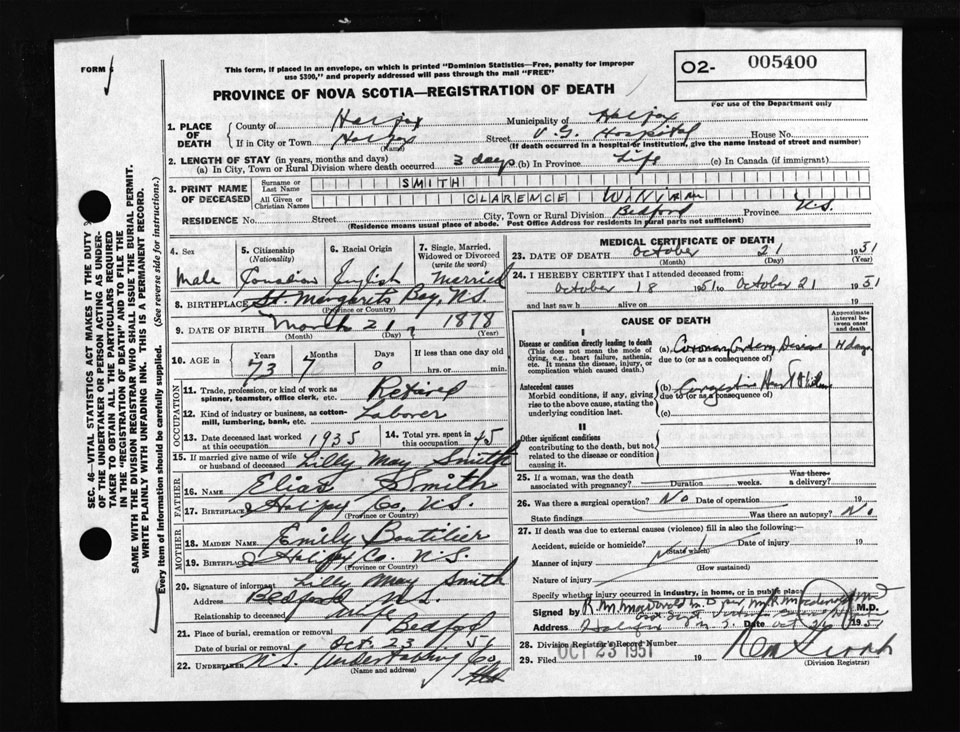 FORM
This form, if placed in an envelope, on which is printed "Dominion Statistics—Free, penalty for improper
use $300," and properly addressed will pass through the mail "FREE"
O2- 005400
For use of the Department only
PROVINCE OF NOVA SCOTIA—REGISTRATION OF DEATH
1. PLACE OF DEATH County of Halifax Municipality of Halifax
If in City or Town Halifax (Name) Street V.G. Hospital House No.
(If death occurred in a hospital or institution, give the name instead of street and number)
2. LENGTH OF STAY (in years, months and days)
(a) In City, Town or Rural Division where death occurred 3 days (b) In Province Life (c) In Canada (if immigrant)
3. PRINT NAME OF DECEASED Surname or Last Name SMITH
All Given or Christian Names CLARENCE
RESIDENCE No. Street City, Town or Rural Division Bedford Province N.S.
(Residence means usual place of abode. Post Office Address for residents in rural parts not sufficient)
4. Sex Male
5. Citizenship (Nationality) Canadian
6. Racial Origin English
7. Single, Married, Widowed or Divorced (write the word) Married
8. BIRTHPLACE St. Margarets Bay, N.S.
(Province or Country)
9. DATE OF BIRTH March 21 1878
(Month) (Day) (Year)
10. AGE in Years 73 Months 7 Days 0 If less than one day old hrs. or min.
OCCUPATION
11. Trade, profession, or kind of work as spinner, teamster, office clerk, etc. Retired
12. Kind of industry or business, as cotton-mill, lumbering, bank, etc. Laborer
13. Date deceased last worked at this occupation 1935
14. Total yrs. spent in this occupation 45
15. If married give name of wife or husband of deceased Lilly May Smith
FATHER
16. NAME Elias Smith
17. BIRTHPLACE Co. N.S.
(Province or Country)
MOTHER
18. MAIDEN NAME Emily Boutilier
19. BIRTHPLACE Halifax Co. N.S.
(Province or Country)
20. Signature of informant Lilly May Smith
Address Bedford N.S.
Relationship to deceased Wife
21. Place of burial, cremation or removal Bedford
Date of burial or removal Oct. 23 51
22. UNDERTAKER N.S. Undertaking Co
(Name and address)
MEDICAL CERTIFICATE OF DEATH
23. DATE OF DEATH October 21 1951
(Month) (Day) (Year)
24. I HEREBY CERTIFY that I attended deceased from:
October 18 1951 to October 21 1951
and last saw h alive on 19
CAUSE OF DEATH
Approximate interval between onset and death
I
Disease or condition directly leading to death
(This does not mean the mode of dying, e.g., heart failure, asthenia, etc. It means the disease, injury, or complication which caused death.)
(a) Coronary Artery Disease 4 days
due to (or as a consequence of)
Antecedent causes
Morbid conditions, if any, giving rise to the above cause, stating the underlying condition last.
(b) Congestive Heart
due to (or as a consequence of)
(c)
II
Other significant conditions
contributing to the death, but not related to the disease or condition causing it.
25. If a woman, was the death associated with pregnancy? Duration weeks. Was there a delivery?
26. Was there a surgical operation? No Date of operation 19
State findings Was there an autopsy? No
27. If death was due to external causes (violence) fill in also the following:—
Accident, suicide or homicide? (State which) Date of injury 19
Manner of injury (How sustained)
Nature of injury
Specify whether injury occurred in industry, in home, or in public place
Signed by M.D.
Address Halifax N.S. Date Oct 1951
28. Division Registrar's Record Number
29. Filed OCT 23 1951 19
(Division Registrar)
SEC. 46—VITAL STATISTICS ACT MAKES IT THE DUTY
OF THE UNDERTAKER OR PERSON ACTING AS UNDER-
TAKER TO OBTAIN ALL THE PARTICULARS REQUIRED
IN THE "REGISTRATION OF DEATH" AND TO FILE THE
SAME WITH THE DIVISION REGISTRAR WHO SHALL ISSUE THE BURIAL PERMIT.
WRITE PLAINLY WITH UNFADING INK. THIS IS A PERMANENT RECORD.
Every item of information should be carefully supplied. (See reverse side for instructions.)